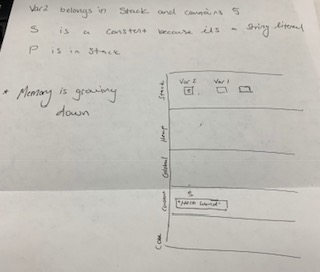 Var2 belongs in Stack and contains 5
S is a constant because its a string literal
P is in Stack
* Memory is growing
down
Stack
Var 2 Var 1
5
Heap
Global
Constant
S
"Hello World"
Code